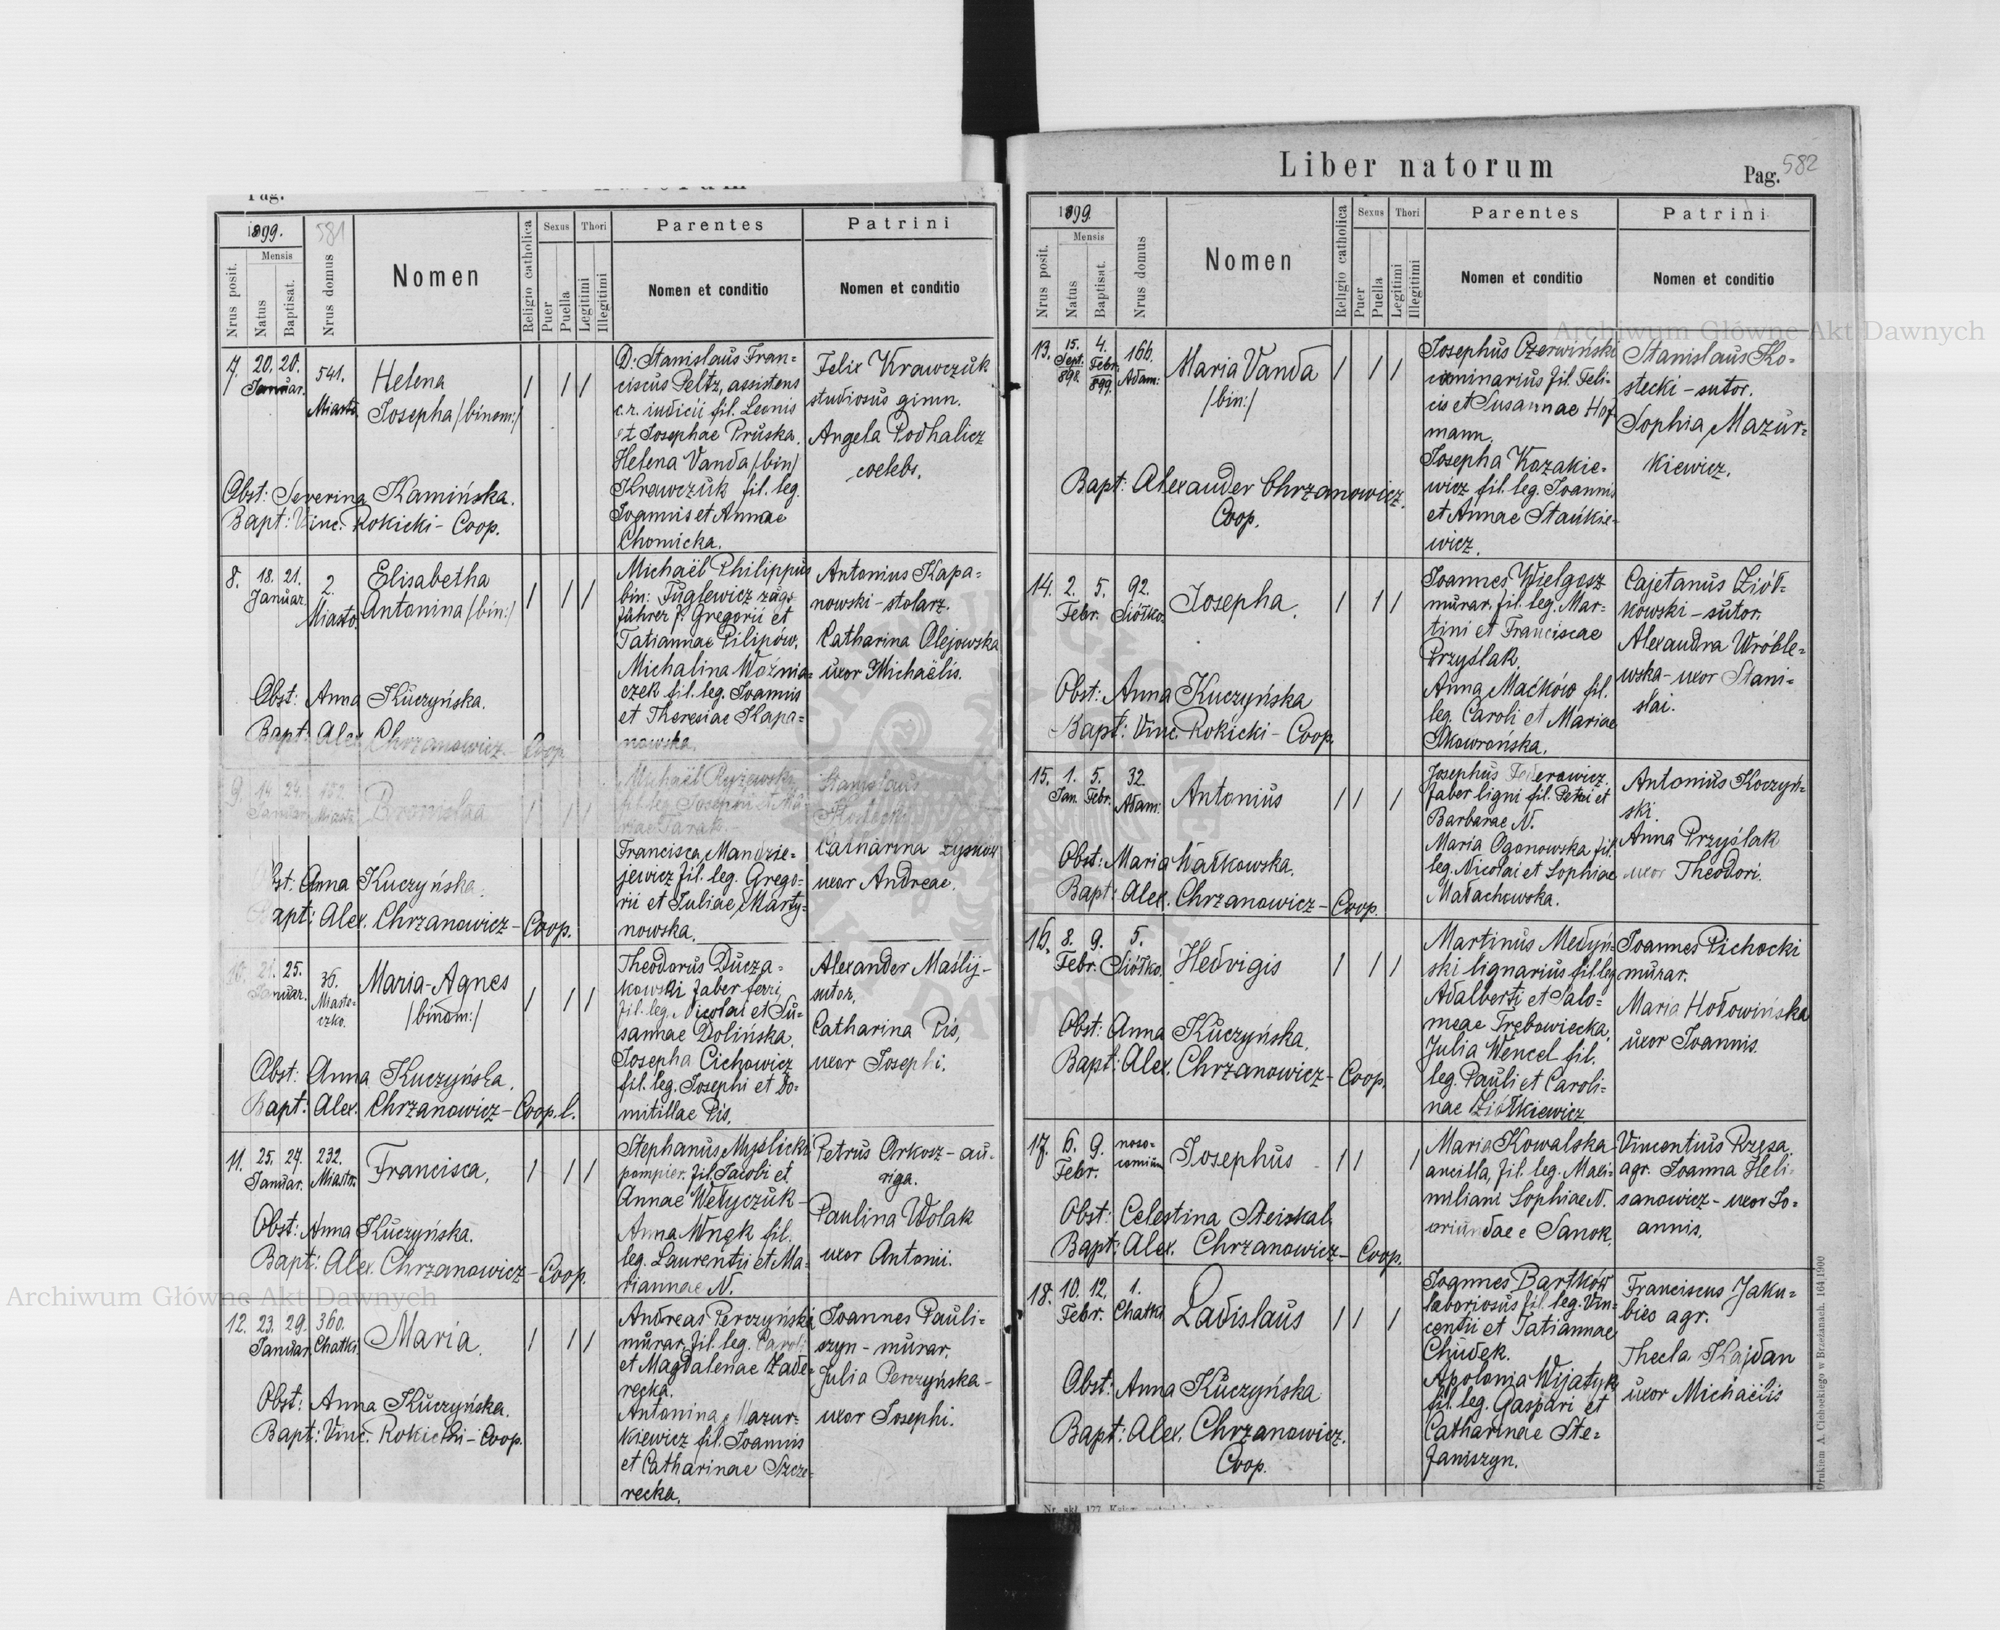 Liber natorum
Pag. 582
Pag.
1899.
581
Nrus posit.
Mensis
Natus
Baptisat.
Nrus domus
Nomen
Religio catholica
Sexus
Puer
Puella
Thori
Legitimi
Illegitimi
Parentes
Nomen et conditio
Patrini
Nomen et conditio
7. 20. 20. Januar. 541. Miasto.
Helena
Josepha /binom:/
D. Stanislaus Fran=
ciscus Peltz, assistens
c.r. iudicii fil. Leonis
et Josephae Pruska.
Helena Vanda /bin/
Krawczuk fil. leg.
Joannis et Annae
Chomicka.
Felix Krawczuk
studiosus gimn.
Angela Podhalicz
coelebs.
Obst: Severina Kamińska.
Bapt: Vinc. Rokicki - Coop.
8. 18. 21. Januar. 2. Miasto.
Elisabetha
Antonina /bin:/
Michaël Philippus
bin: Fuglewicz zugs
führer f. Gregorii et
Tatiannae Pilipów.
Michalina Woźnia=
czek fil. leg. Joannis
et Theresiae Kapa=
nowska.
Antonius Kapa=
nowski - stolarz.
Katharina Olejowska
uxor Michaëlis.
Obst: Anna Kuczyńska.
Bapt: Alex. Chrzanowicz - Coop
9. 14. 24. Januar. Miasto
Bronislaa
Michaël Ryżewski
fil. leg. Josephi et Ma=
riae Tarak.
Francisca Mandzie=
jewicz fil. leg. Grego=
rii et Juliae Marty=
nowska.
Stanislaus
Kostecki
Catharina Zyskow
uxor Andreae.
Obst: Anna Kuczyńska.
Bapt: Alex. Chrzanowicz - Coop.
10. 21. 25. Januar. 36. Miaste=
czko.
Maria-Agnes
/binom:/
Theodorus Ducza=
kowski faber ferri,
fil. leg. Nicolai et Su=
sannae Dolińska.
Josepha Cichowicz
fil. leg. Josephi et Do=
mitillae Pis.
Alexander Maślij-
sutor,
Catharina Pis,
uxor Josephi.
Obst: Anna Kuczyńska.
Bapt: Alex. Chrzanowicz - Coop. l.
11. 25. 27. Januar. 232. Miasto.
Francisca.
Stephanus Myślicki
pompier. fil. Jacobi et
Annae Wetyczuk -
Anna Wnęk fil.
leg. Laurentii et Ma=
riannae N.
Petrus Arkosz - au=
riga.
Paulina Wolak
uxor Antonii.
Obst: Anna Kuczyńska.
Bapt: Alex. Chrzanowicz - Coop.
12. 23. 29. Januar. 360. Chatki
Maria.
Andreas Perczyński
murar. fil. leg. Caroli
et Magdalenae Zade=
recka.
Antonina Mazur=
kiewicz fil. Joannis
et Catharinae Szcze=
recka.
Joannes Pauli=
szyn - murar.
Julia Perczyńska -
uxor Josephi.
Obst: Anna Kuczyńska.
Bapt: Vinc. Rokicki - Coop.
1899
Nrus posit.
Mensis
Natus
Baptisat.
Nrus domus
Nomen
Religio catholica
Sexus
Puer
Puella
Thori
Legitimi
Illegitimi
Parentes
Nomen et conditio
Patrini
Nomen et conditio
13. 15. Sept. 898. 4. Febr. 899. 166. Adam:
Maria Vanda
/bin:/
Josephus Czerwiński
ciminarius fil. Feli=
cis et Susannae Hof
mann.
Josepha Kozakie=
wicz fil. leg. Joannis
et Annae Stańkie=
wicz.
Stanislaus Ko=
stecki - sutor.
Sophia Mazur=
kiewicz.
Bapt: Alexander Chrzanowicz.
Coop.
14. 2. 5. Febr. 92. Siółko.
Josepha.
Joannes Wielgosz
murar. fil. leg. Mar=
tini et Franciscae
Przyślak.
Anna Maćków fil.
leg. Caroli et Mariae
Skowrońska.
Cajetanus Ziół=
kowski - sutor.
Alexandra Wróble=
wska - uxor Stani=
slai.
Obst: Anna Kuczyńska
Bapt: Vinc Rokicki - Coop.
15. 1. Jan. 5. Febr. 32. Adam:
Antonius
Josephus Federowicz.
faber ligni fil. Petri et
Barbarae N.
Maria Ogonowska fil.
leg. Nicolai et Sophiae
Małachowska.
Antonius Koczyń=
ski.
Anna Przyślak
uxor Theodori.
Obst: Maria Wałkowska.
Bapt: Alex. Chrzanowicz - Coop.
16. 8. 9. Febr. 5. Siółko.
Hedvigis
Martinus Medyń=
ski lignarius fil. leg
Adalberti et Salo=
meae Trębowiecka,
Julia Wencel fil.
leg. Pauli et Caroli=
nae Ziółkiewicz
Joannes Pichocki
murar.
Maria Hołowińska
uxor Joannis.
Obst: Anna Kuczyńska.
Bapt: Alex. Chrzanowicz - Coop.
17. 6. 9. Febr. noso=
comium
Josephus
Maria Kowalska
ancilla, fil. leg. Maxi=
miliani Sophiae N.
oriundae e Sanok.
Vincentius Rzęsa,
agr. Joanna Heli=
sanowicz - uxor Jo=
annis.
Obst: Celestina Steiskal
Bapt: Alex. Chrzanowicz - Coop.
18. 10. 12. Febr. 1. Chatki
Ladislaus
Joannes Bartków
laboriosus fil. leg. Vin=
centii et Tatiannae
Chudek.
Apolonia Wijatyk
fil. leg. Gaspari et
Catharinae Ste=
faniszyn.
Franciscus Jaku=
bies agr.
Thecla Kajdan
uxor Michaëlis
Obst: Anna Kuczyńska
Bapt: Alex. Chrzanowicz.
Coop.
Archiwum Główne Akt Dawnych
Archiwum Główne Akt Dawnych